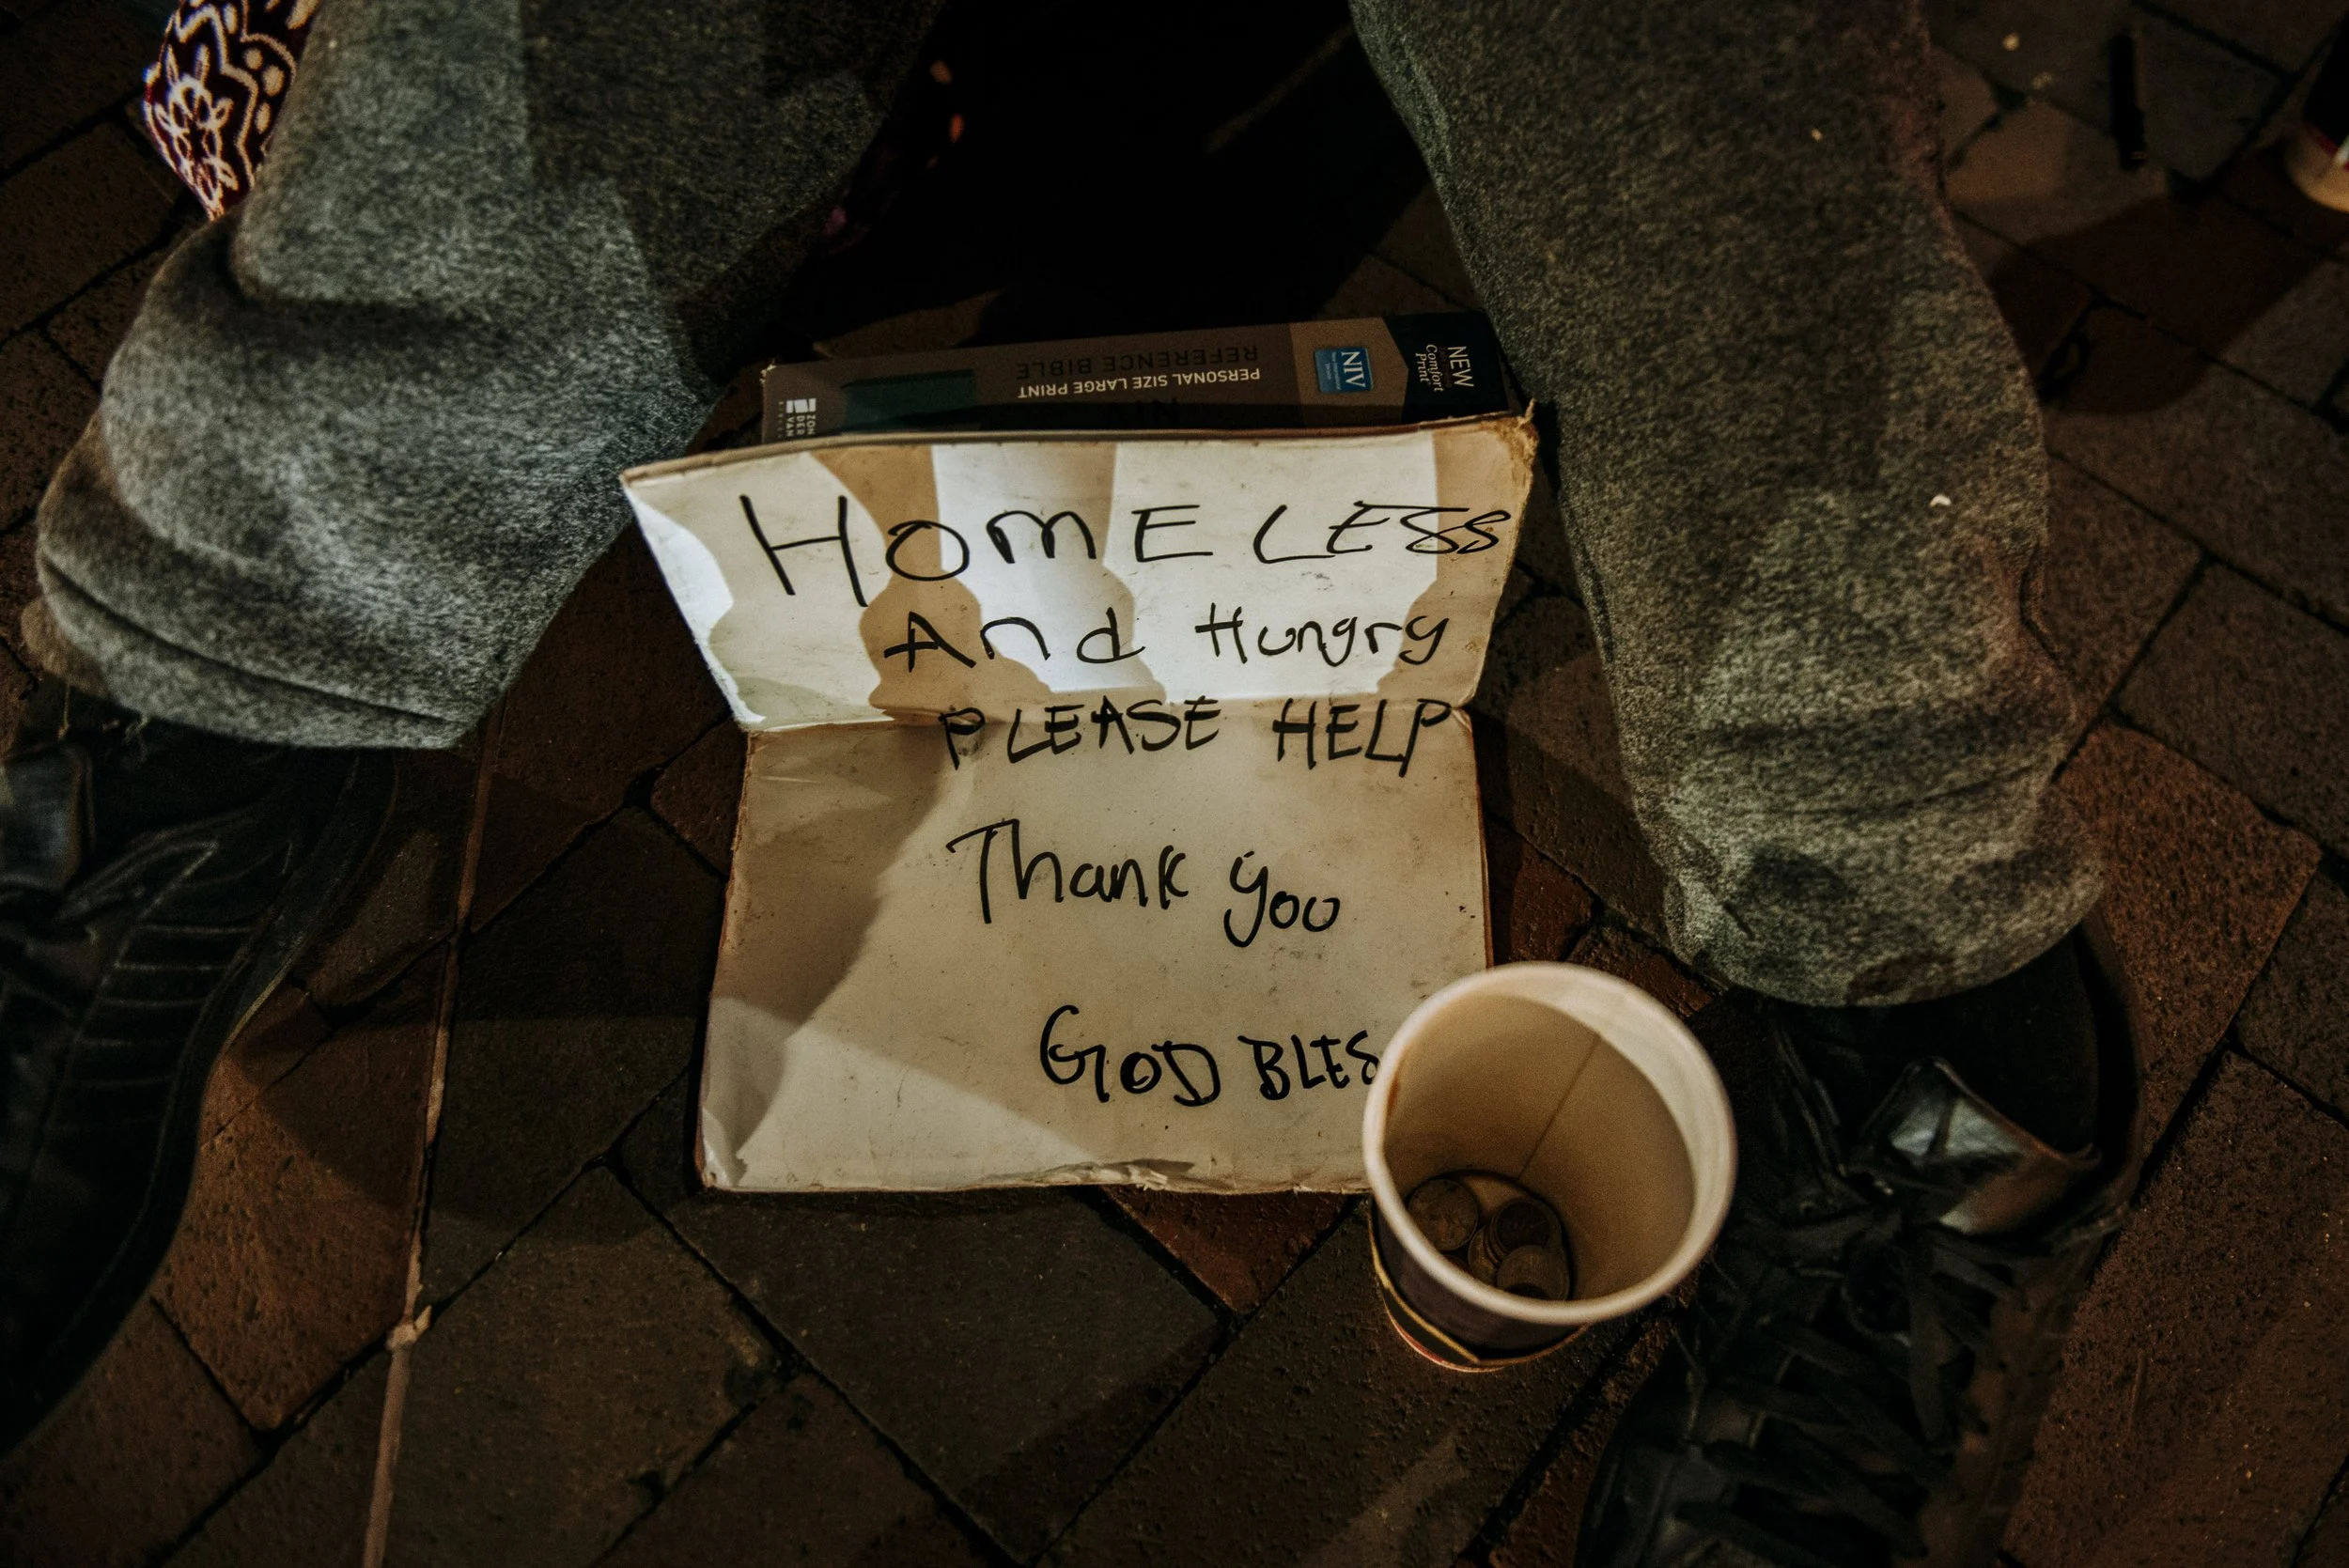 NEW
Comfort
Print
NIV
PERSONAL SIZE LARGE PRINT
REFERENCE BIBLE
NIV
ZON
DER
VAN
HOMELESS
And Hungry
PLEASE HELP
Thank you
GOD BLES